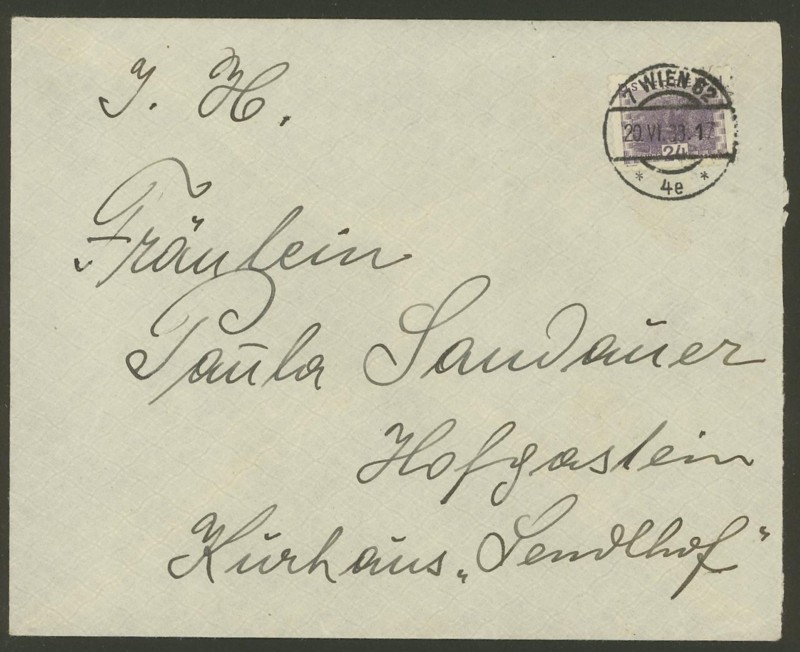 I. H.
7 WIEN 62
20. VI. 33. 17
24
* 4e *
Fräulein
Paula Sandauer
Hofgastein
Kurhaus „Sendlhof"